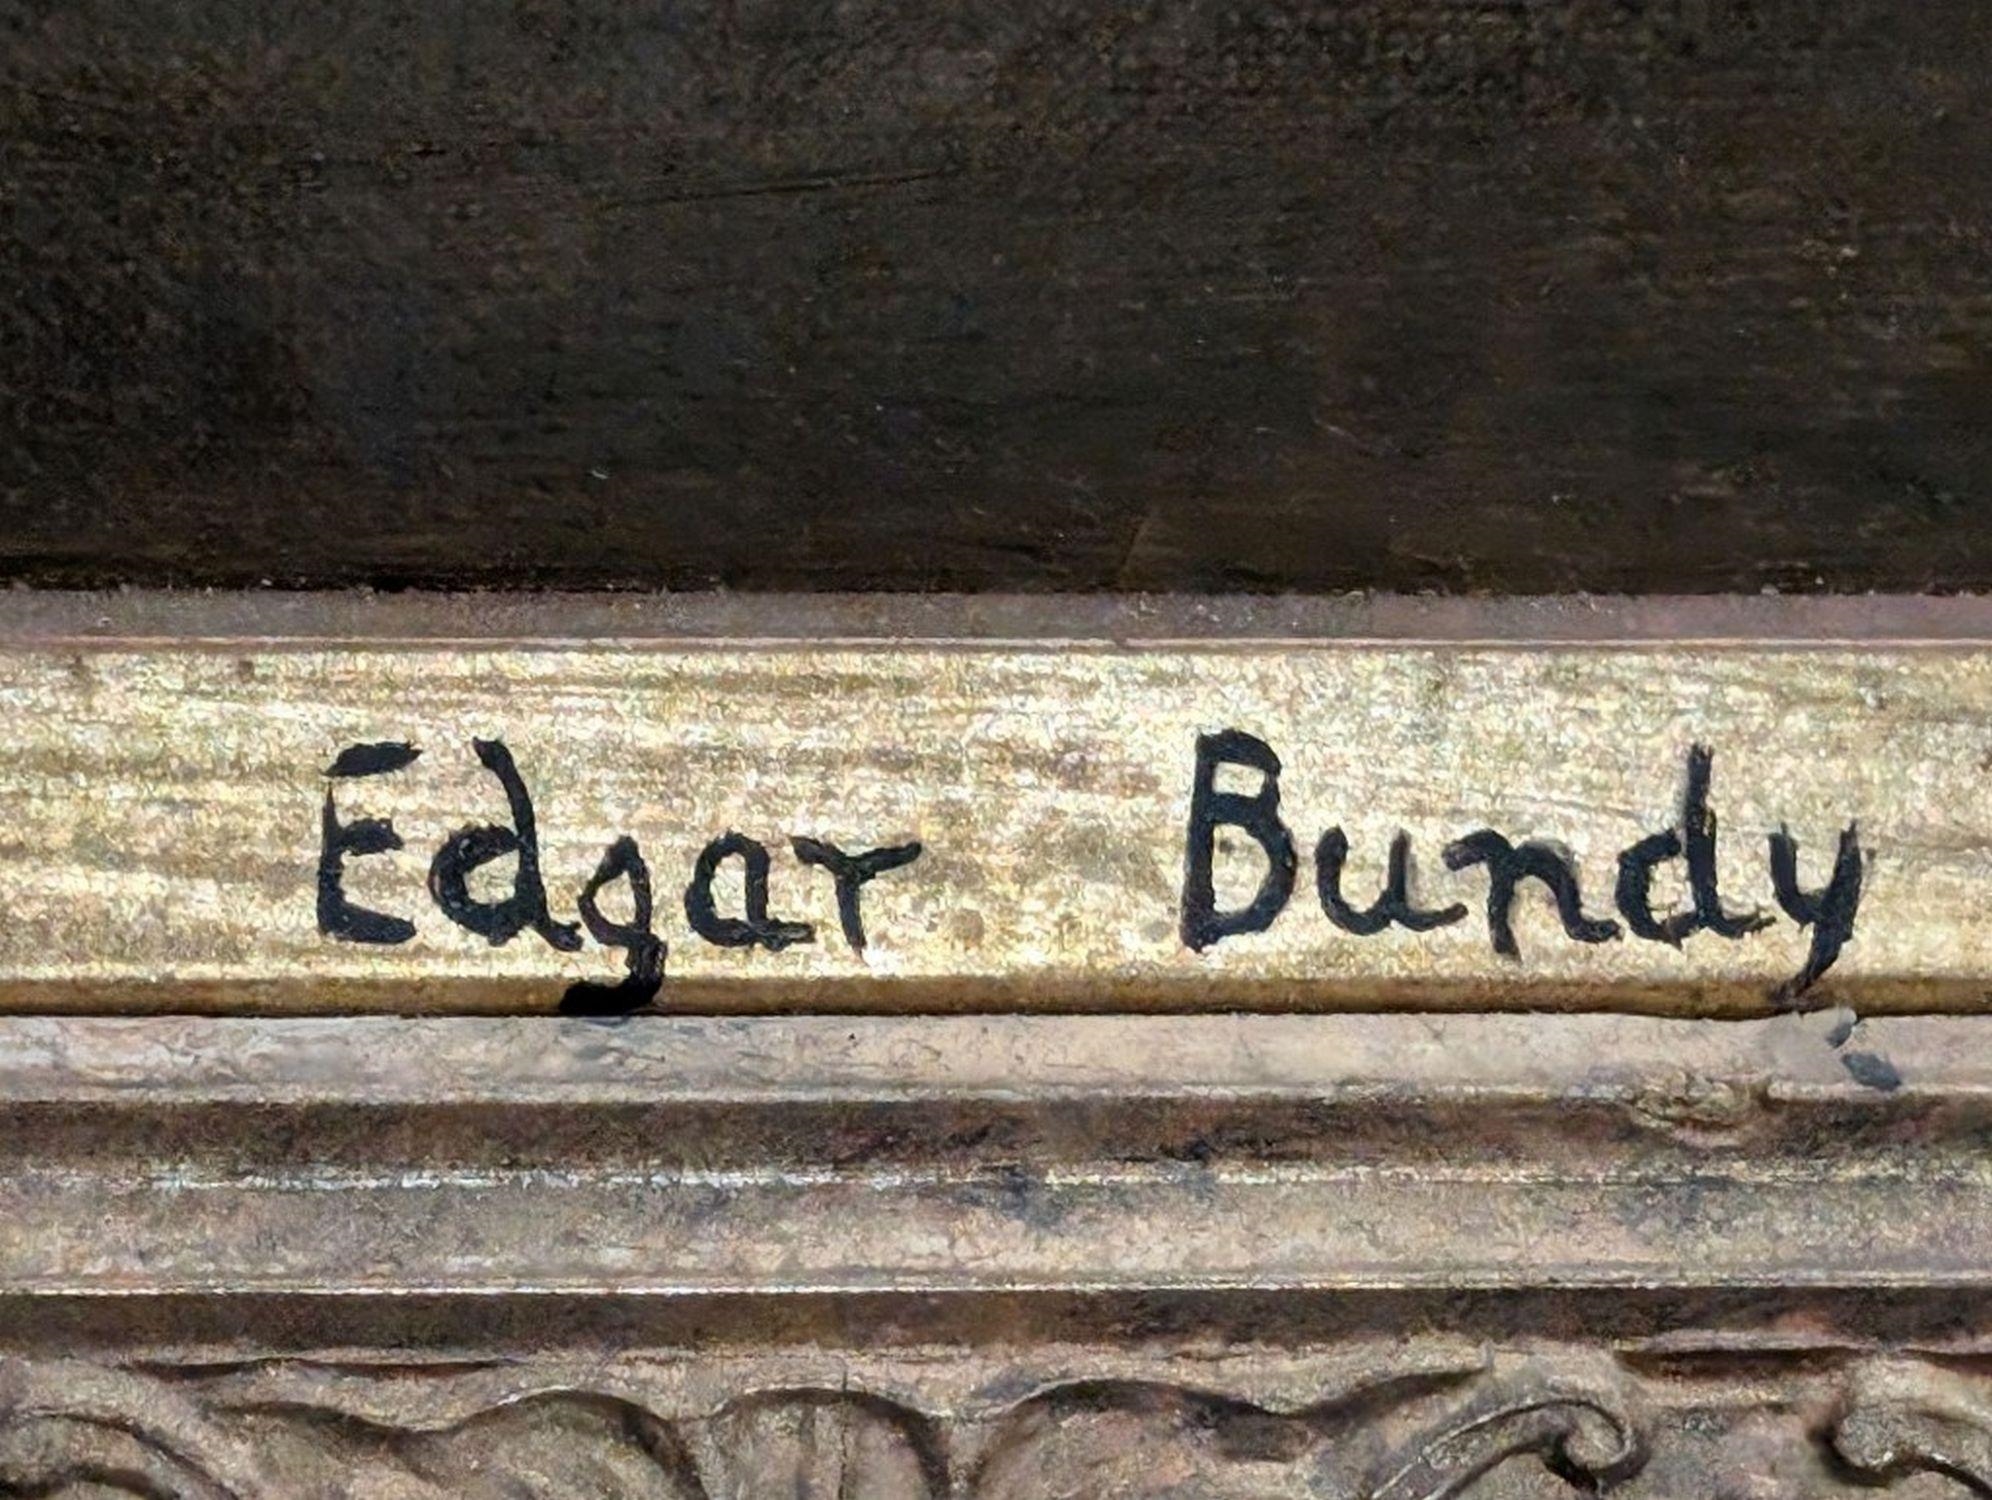 Edgar Bundy